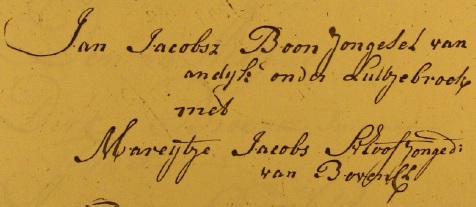 Jan Jacobsz Boon Jongesel van
andijk onder Lutjebroek
met
Mareijtje Jacobs Sloof Jonged:
van